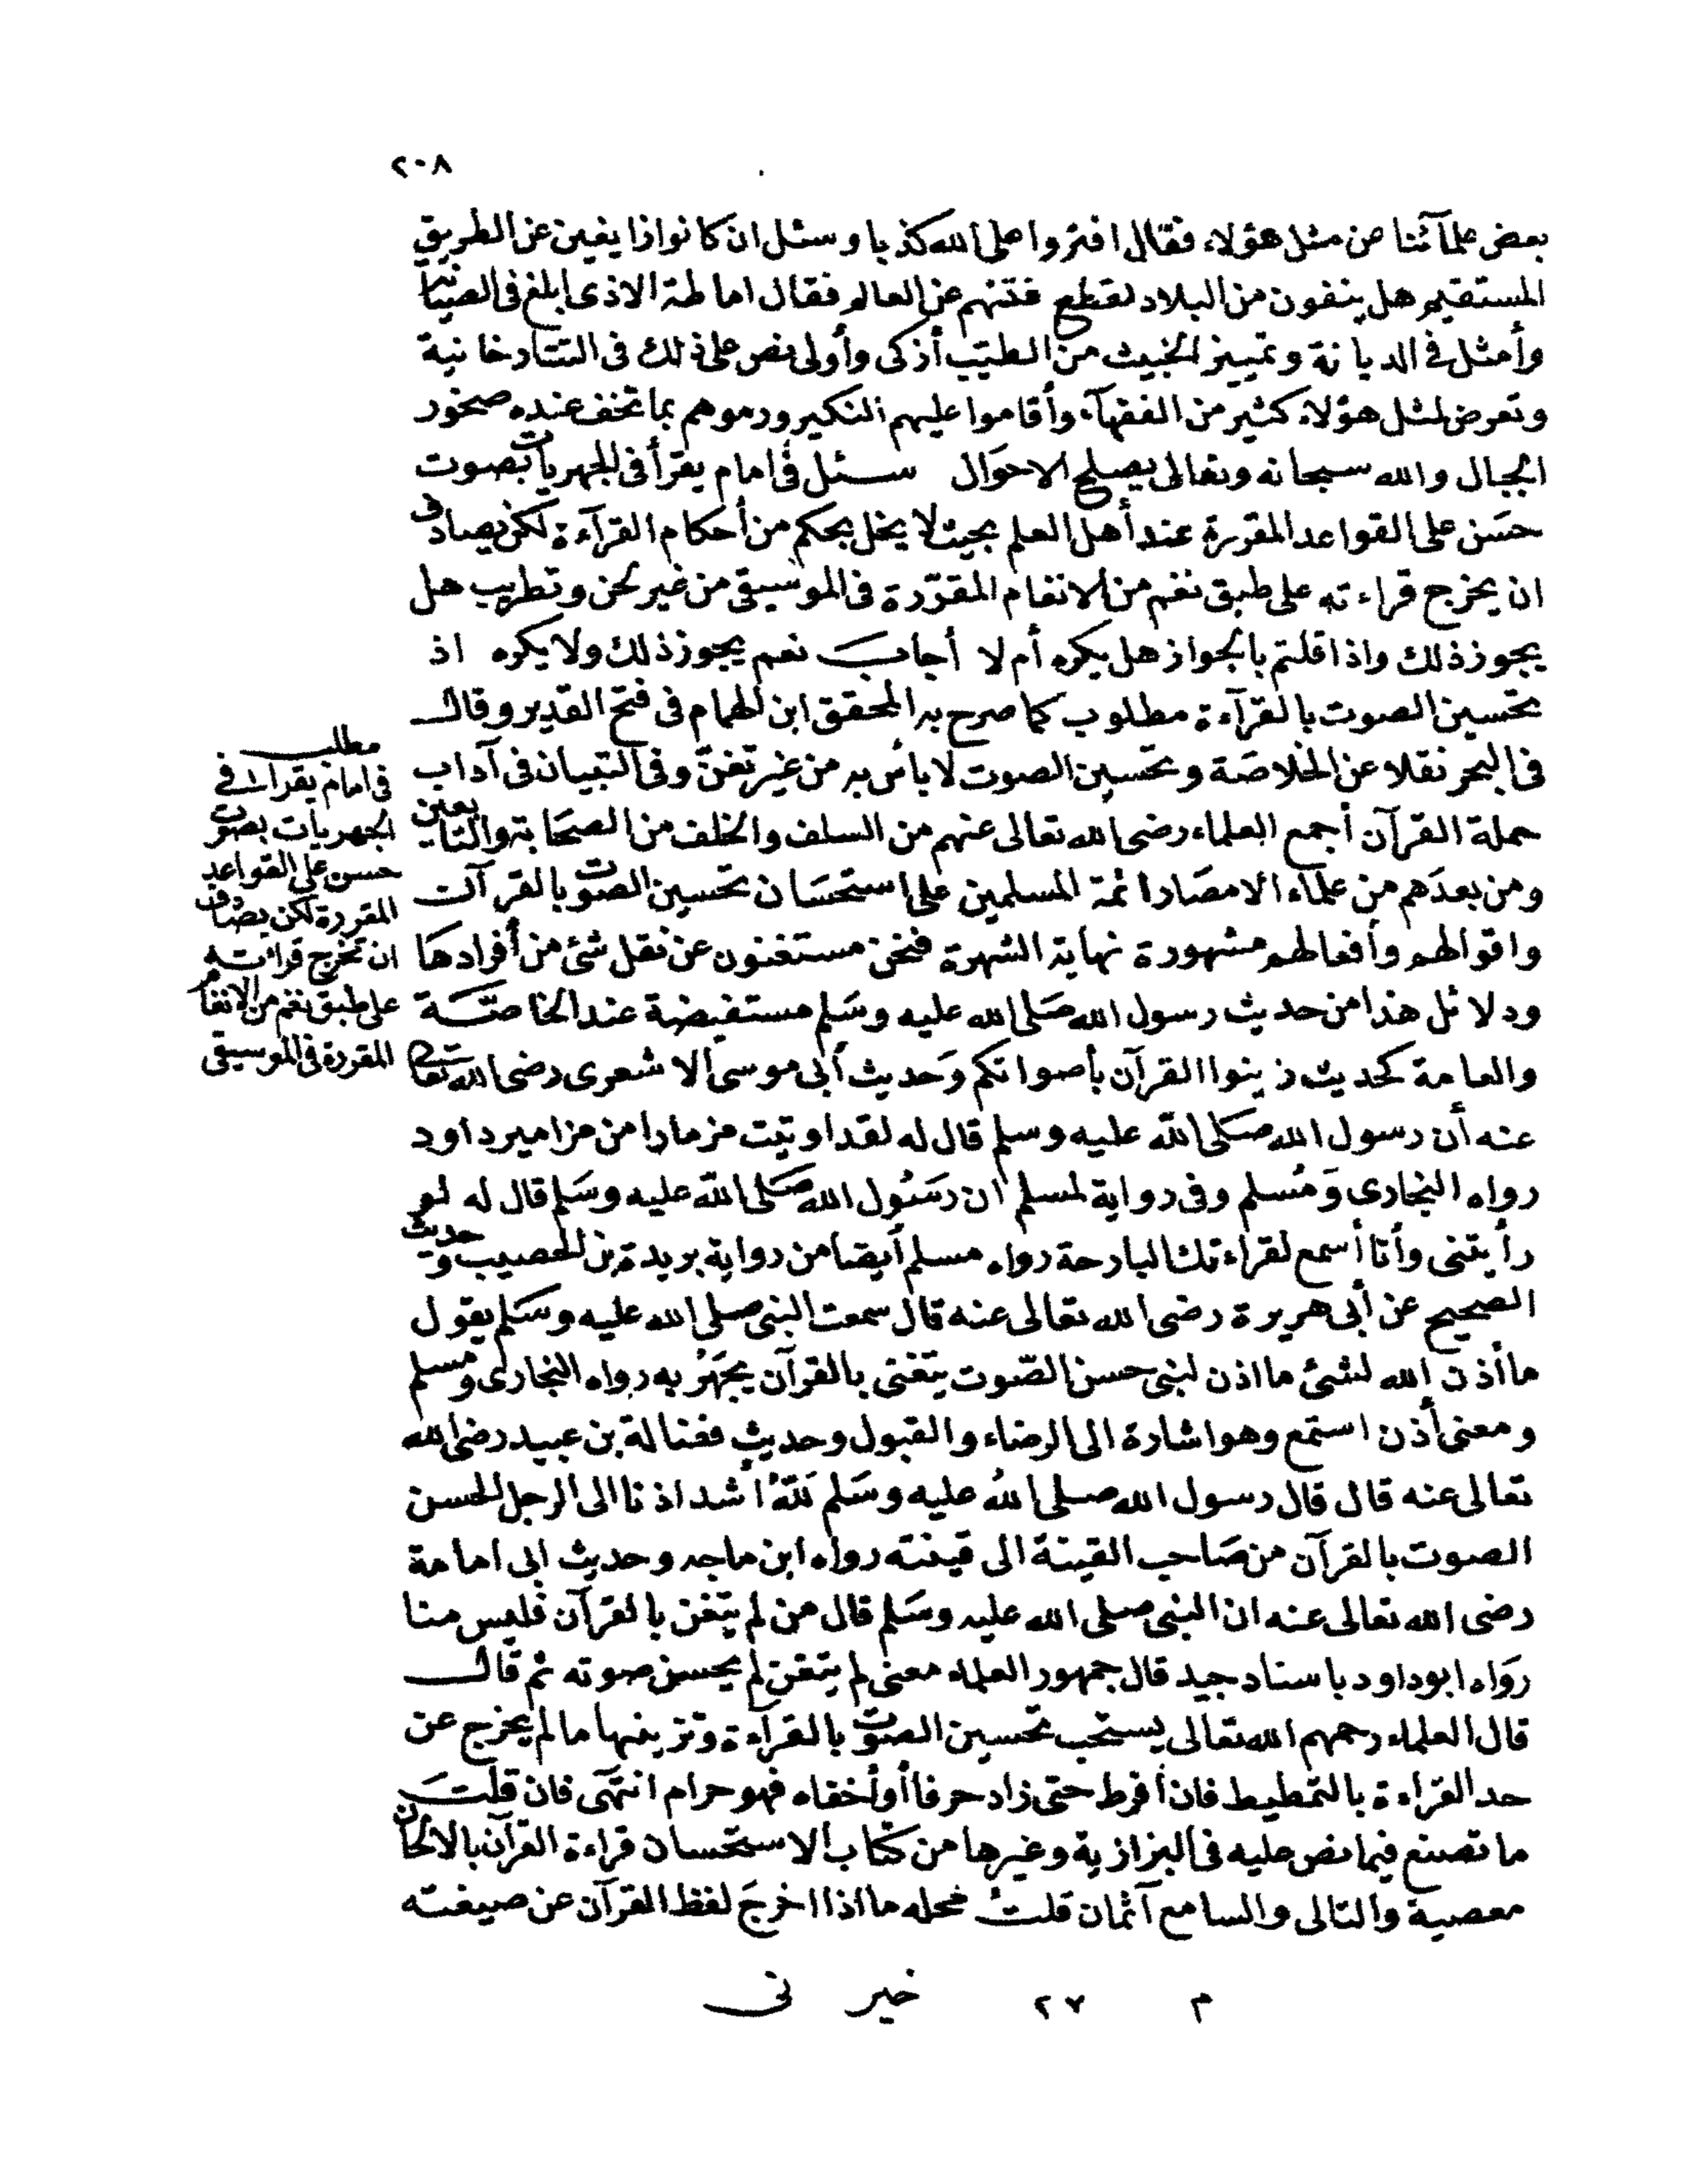 ٢٠٨
بعض علمآئنا عن مثل هؤلاء فقال افتروا على الله كذبا وسئل ان كانوا زايغين عن الطريق
المستقيم هل ينفون من البلاد لقطع فتنهم عن العالم فقال اماطة الاذى ابلغ فى الصيانة
وأمثل فى الديانة وتمييز الخبيث من الطيب أزكى وأولى نص على ذلك فى التتارخانية
وتعرض لمثل هؤلاء كثير من الفقهآء وأقاموا عليهم النكير ورموهم بما تخف عنده صخور
الجبال والله سبحانه وتعالى يصلح الاحوال سئل فى امام يقرأ فى الجهريات بصوت
حسن على القواعد المقررة عند أهل العلم بحيث لا يخل بحكم من أحكام القرآءة لكن يصادف
ان يخرج قراءته على طبق نغم من الانغام المقررة فى الموسيقى من غير لحن وتطريب هل
يجوز ذلك واذا قلتم بالجواز هل يكره أم لا أجاب نعم يجوز ذلك ولا يكره اذ
تحسين الصوت بالقرآءة مطلوب كما صرح به المحقق ابن الهمام فى فتح القدير وقال
فى البحر نقلا عن الخلاصة وتحسين الصوت لا بأس به من غير تغنّ وفى التبيان فى آداب
حملة القرآن أجمع العلماء رضى الله تعالى عنهم من السلف والخلف من الصحابة والتابعين
ومن بعدهم من علماء الامصار ائمة المسلمين على استحسان تحسين الصوت بالقرآن
واقوالهم وأفعالهم مشهورة نهاية الشهرة فنحن مستغنون عن نقل شئ من أفرادها
ودلائل هذا من حديث رسول الله صلى الله عليه وسلم مستفيضة عند الخاصّة
والعامة كحديث زينوا القرآن بأصواتكم وحديث أبى موسى الاشعرى رضى الله تعالى
عنه أن رسول الله صلى الله عليه وسلم قال له لقد اوتيت مزمارا من مزامير داود
رواه البخارى ومسلم وفى رواية لمسلم ان رسول الله صلى الله عليه وسلم قال له لو
رأيتنى وأنا أسمع لقراءتك البارحة رواه مسلم أيضا من رواية بريدة بن الحصيب وحديث
الصحيح عن أبى هريرة رضى الله تعالى عنه قال سمعت النبى صلى الله عليه وسلم يقول
ما أذن الله لشئ ما اذن لنبى حسن الصّوت يتغنى بالقرآن يجهر به رواه البخارى ومسلم
ومعنى أذن استمع وهو اشارة الى الرضاء والقبول وحديث فضالة بن عبيد رضى الله
تعالى عنه قال قال رسول الله صلى الله عليه وسلم للهُ أشد اذنا الى الرجل الحسن
الصوت بالقرآن من صاحب القينة الى قينته رواه ابن ماجه وحديث ابى امامة
رضى الله تعالى عنه ان النبى صلى الله عليه وسلم قال من لم يتغن بالقرآن فليس منا
رواه ابو داود باسناد جيد قال جمهور العلماء معنى لم يتغن لم يحسن صوته ثم قال
قال العلماء رحمهم الله تعالى يستحب تحسين الصوت بالقرآءة وتزيينها ما لم يخرج عن
حد القراءة بالتمطيط فان أفرط حتى زاد حرفا أو أخفاه فهو حرام انتهى فان قلت
ما تصنع فيما نص عليه فى البزازية وغيرها من كتاب الاستحسان قراءة القرآن بالالحان
معصية والتالى والسامع آثمان قلتُ محله ما اذا اخرج لفظ القرآن عن صيغته
م ٢٧ خير نى
مطلب
فى امام يقرأ فى
الجهريات بصوت
حسن على القواعد
المقررة لكن يصادف
ان تخرج قراءته
على طبق نغم من الانغام
المقررة فى الموسيقى